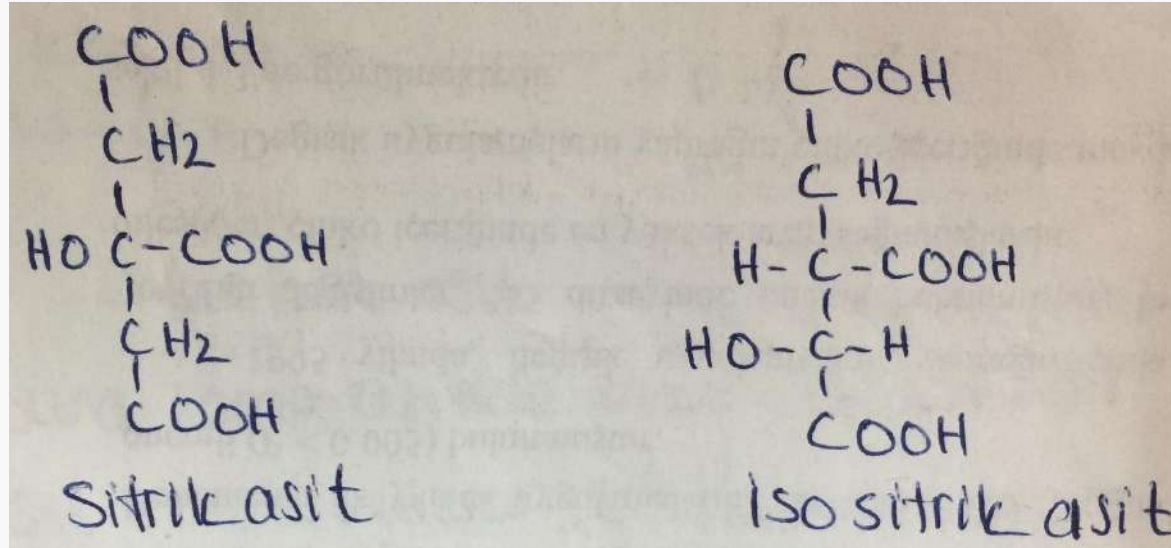 COOH
CH2
HO C-COOH
CH2
COOH
Sitrik asit
COOH
CH2
H-C-COOH
HO-C-H
COOH
isositrik asit